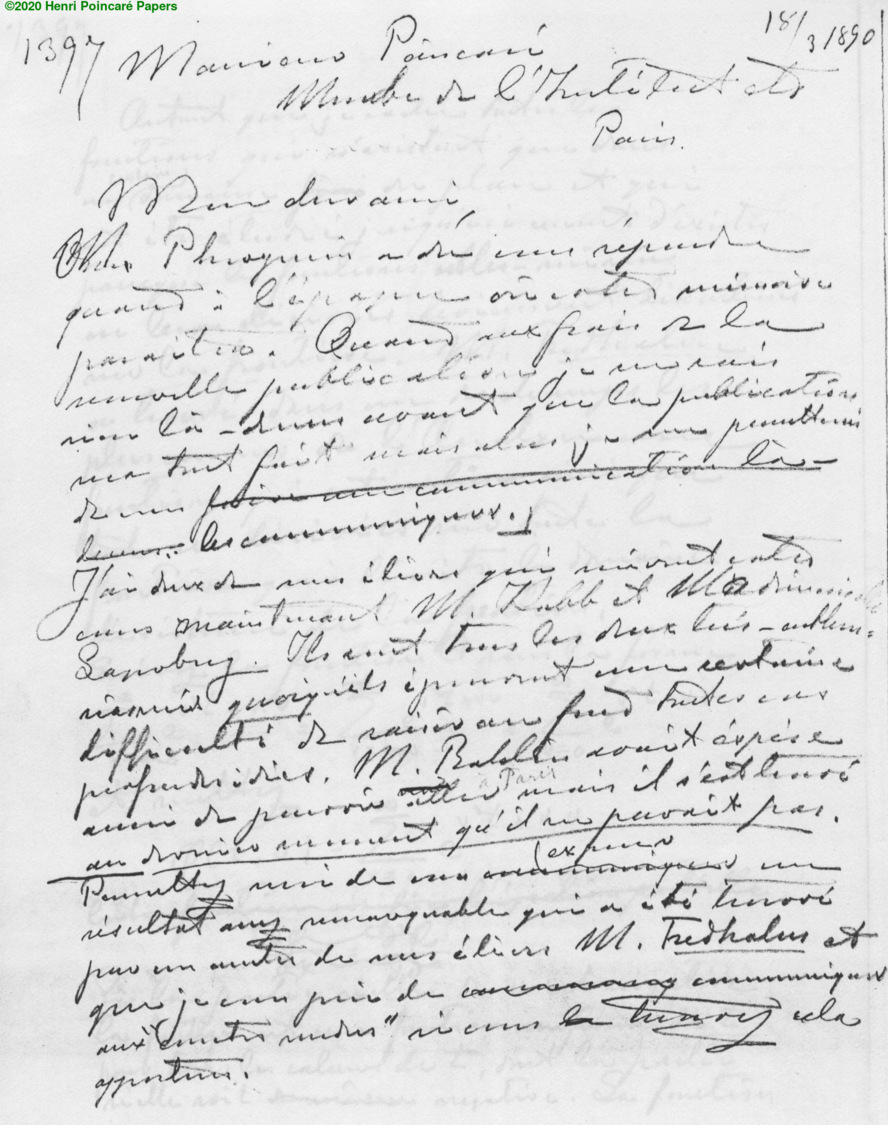 ©2020 Henri Poincaré Papers
18/3 1890
1397
Monsieur Poincaré
Membre de l'Institut etc
Paris.
Mon cher ami,
Phragmén a dû vous répondre
quand à l'époque où votre mémoire
paraîtra. Quand aux frais de la
nouvelle publication je ne sais
rien là-dessus avant que la publication
sera tout fait mais alors je me permetterais
de vous faire une communication là-
dessus. les communiquer.
J'ai deux de mes élèves qui suivent votre
cours maintenant M. Kobb et Mademoiselle
. Ils sont tous les deux très-enthou-
siasmés quoiqu'ils éprouvent une certaine
difficulté de saisir au fond toutes vos
profondes idées. M. avait espéré
aussi de pouvoir aller à Paris mais il s'est trouvé
au dernier moment qu'il ne pouvait pas.
Permettez moi de vous communiquer exposer un
résultat assez remarquable qui a été trouvé
par un autre de mes élèves M. Fredholm et
que je vous prie de communiquer
aux "comtes rendus" si vous le trouvez cela
opportun.